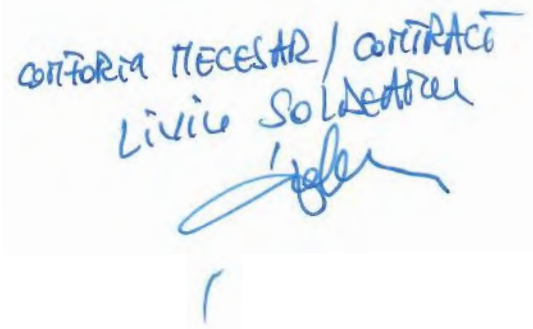 CONFORM NECESAR / CONTRACT
LIVIU SOLDEANU